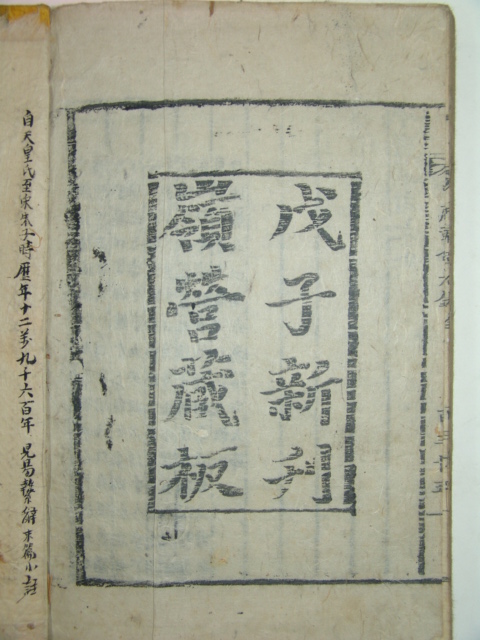 戊子新刊
嶺營藏板
自天皇氏至宋朱子時歷年十二萬九千六百年 見易繫辭末篇小註